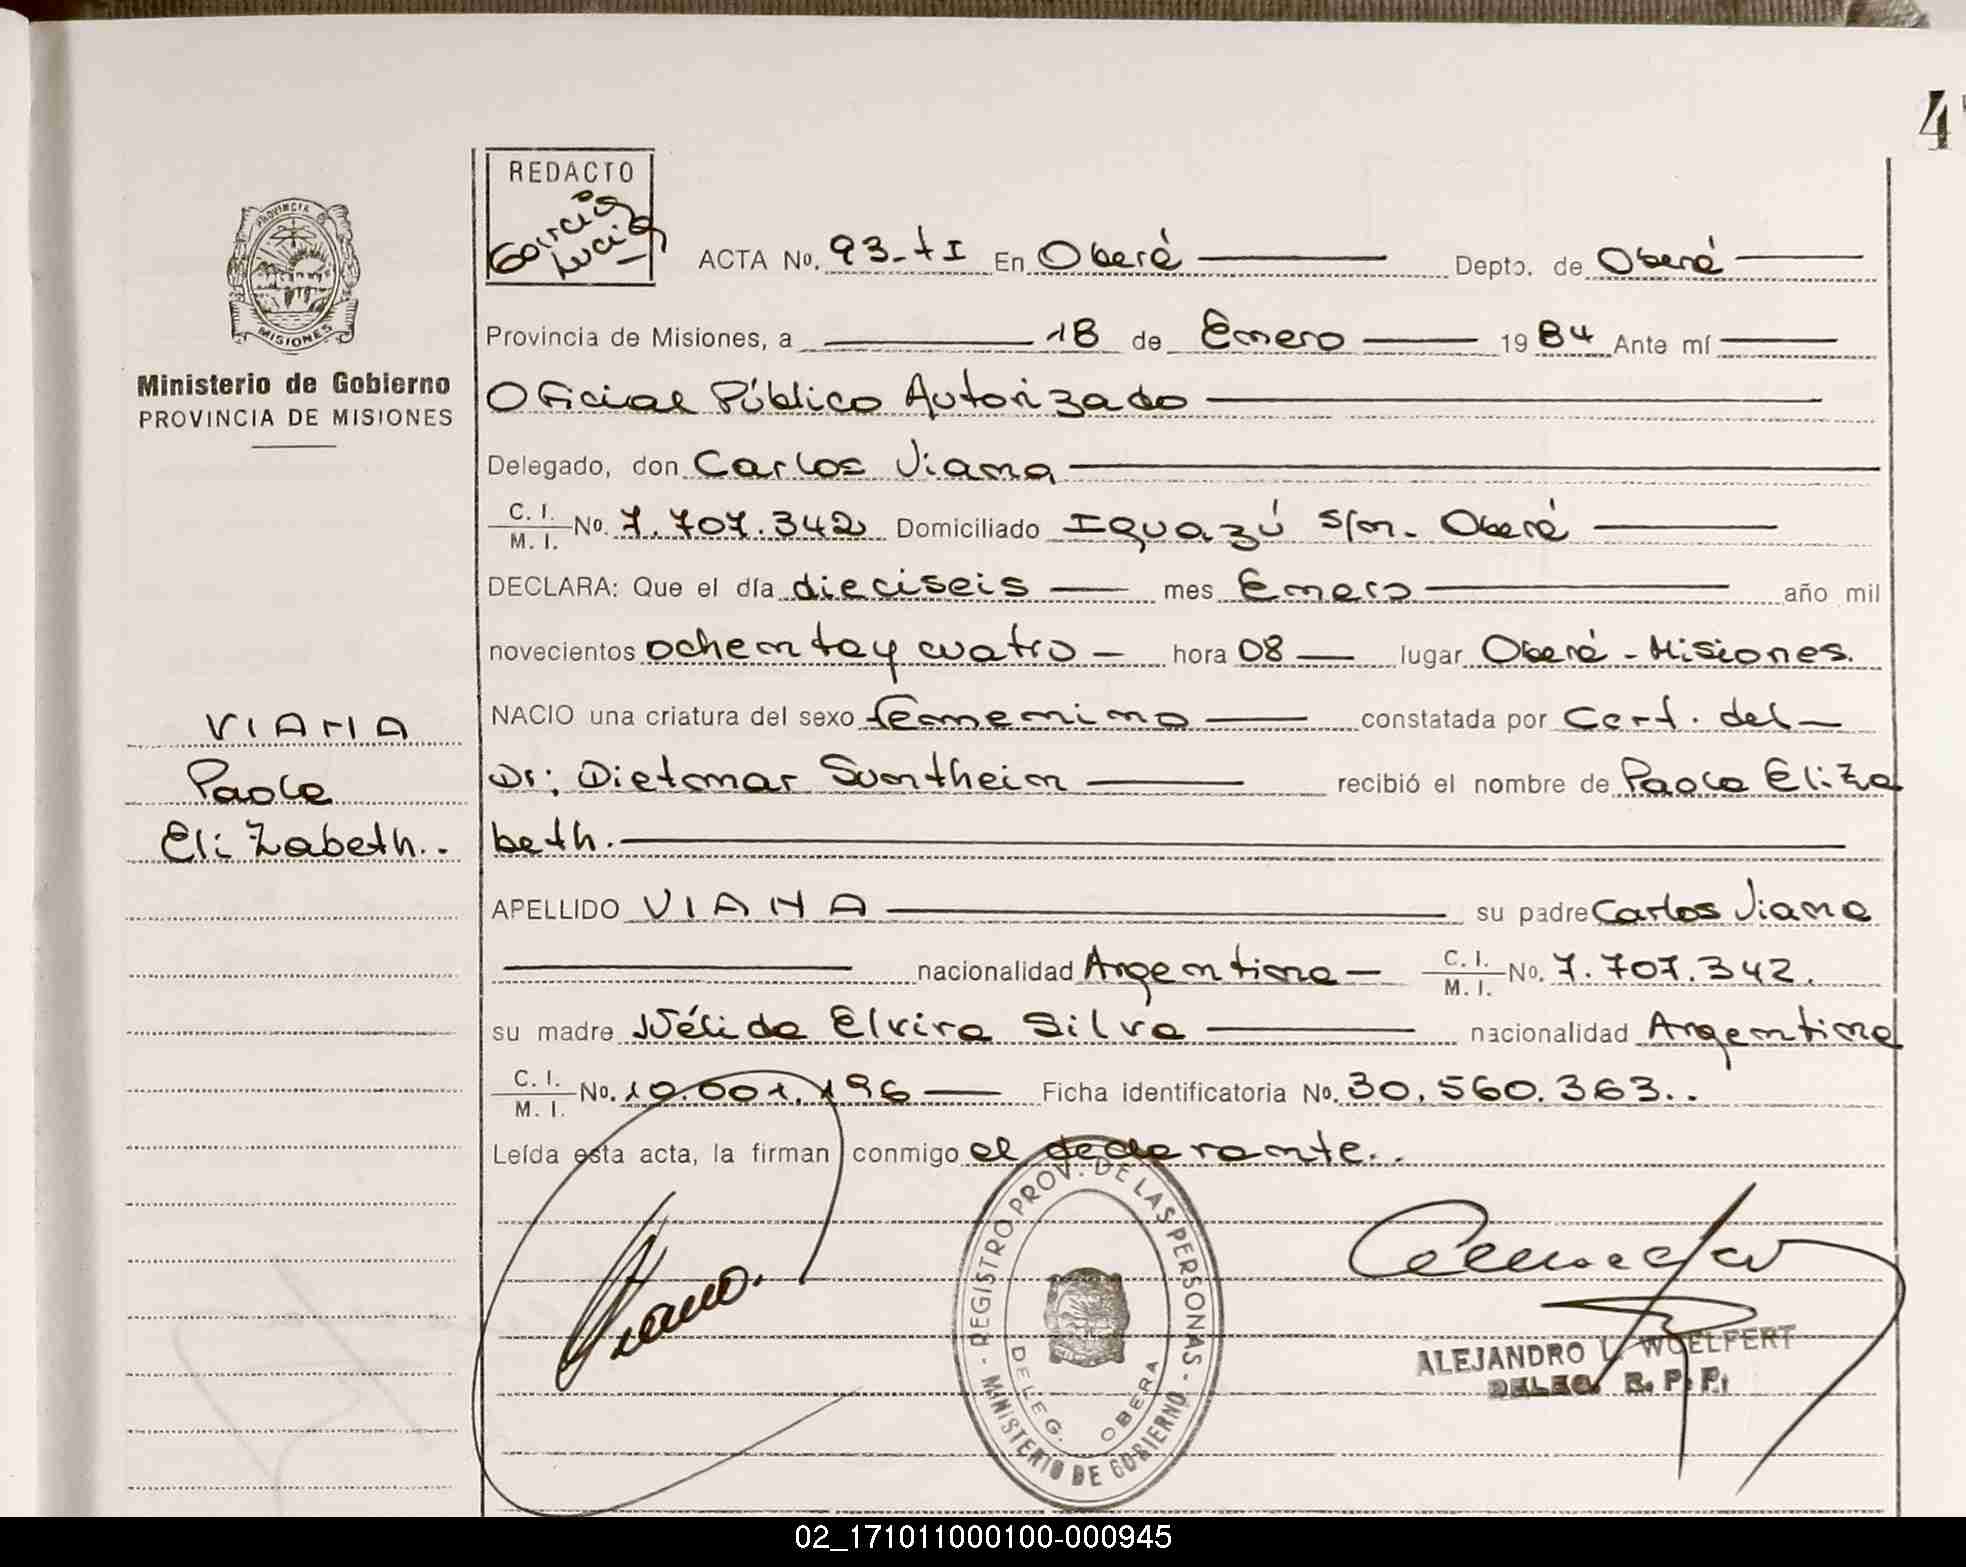 4
REDACTO
Garcia
Lucia
PROVINCIA
MISIONES
Ministerio de Gobierno
PROVINCIA DE MISIONES
ACTA No. 93-tI En Oberá Depto. de Oberá
Provincia de Misiones, a 18 de Enero 1984 Ante mí
Oficial Público Autorizado
Delegado, don Carlos Viana
C. I.
M. I. No. 7.707.342 Domiciliado Iguazú s/n. Oberá
DECLARA: Que el día dieciseis mes Enero año mil
novecientos ochenta y cuatro hora 08 lugar Oberá - Misiones.
NACIO una criatura del sexo femenino constatada por Cert. del
Dr; Dietmar Suntheim recibió el nombre de Paola Eliza
beth.
VIANA
Paola
Elizabeth..
APELLIDO VIANA su padre Carlos Viana
nacionalidad Argentina C. I.
M. I. No. 7.707.342.
su madre Nélida Elvira Silva nacionalidad Argentina
C. I.
M. I. No. 10.001.196 Ficha identificatoria No. 30.560.363..
Leída esta acta, la firman conmigo el declarante..
Viana.
- REGISTRO PROV. DE LAS PERSONAS -
MINISTERIO DE GOBIERNO
DELEG. OBERA
ALEJANDRO L. WOELFERT
DELEG. R. P. P.
02_171011000100-000945